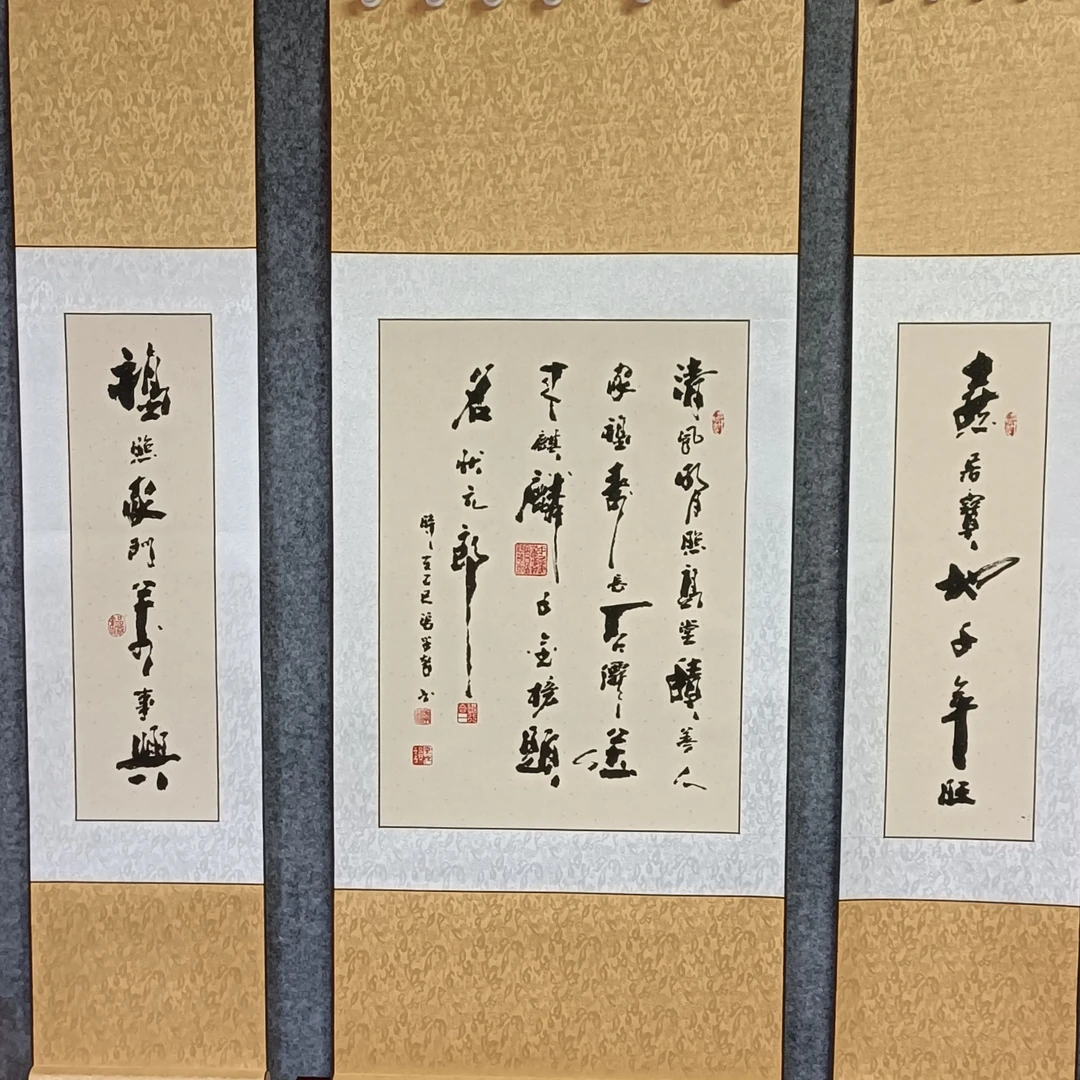 喜居寶地千年旺
清風明月照高堂積善人
家福壽長百僊送
來麒麟子金榜題
名狀元郎
時在乙巳張書
福照家門萬事興